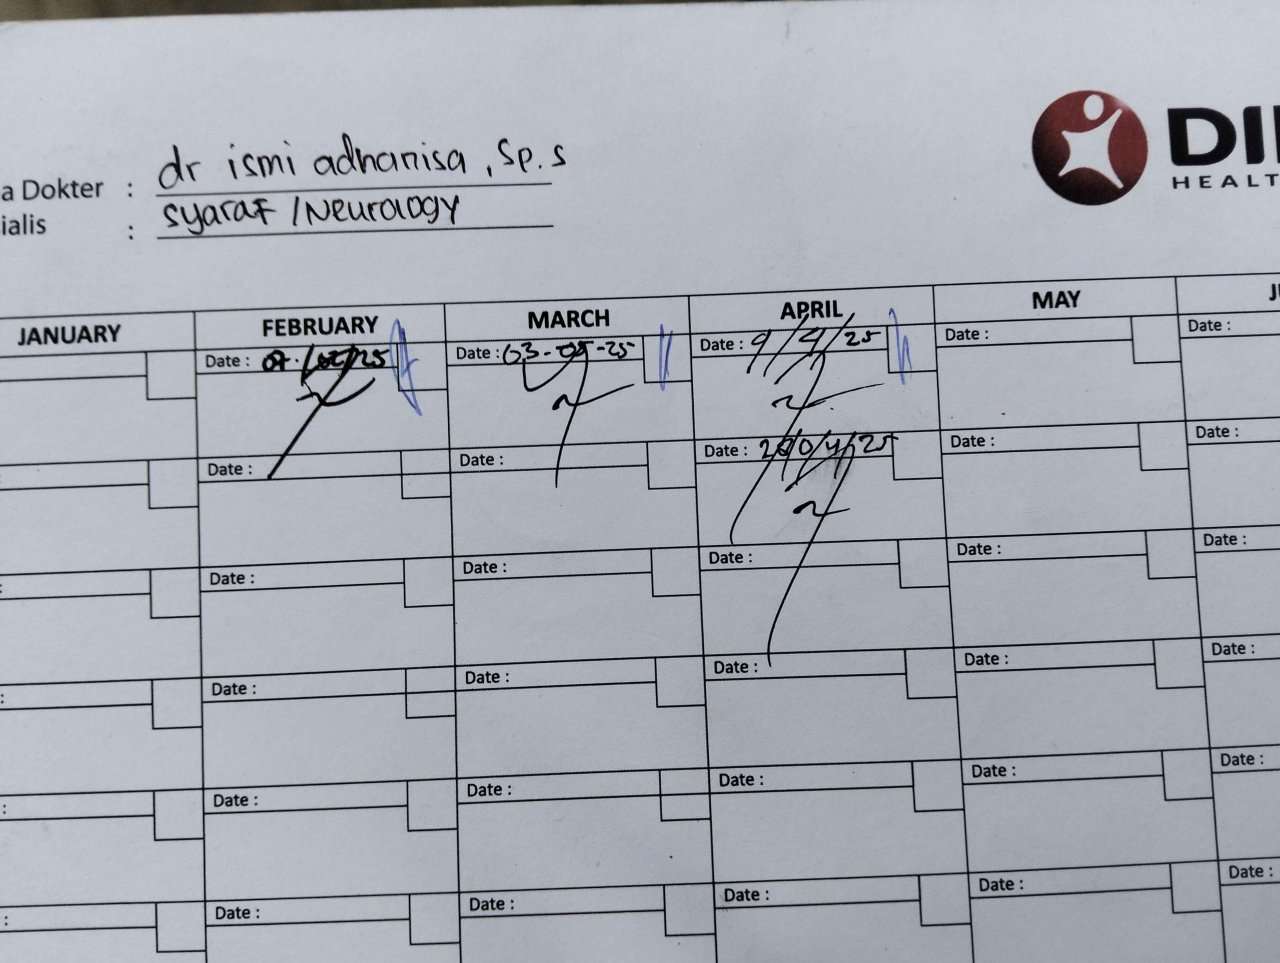 DI
HEALT
a Dokter : dr ismi adhanisa, Sp.s
ialis : syaraf / Neurology
JANUARY FEBRUARY MARCH APRIL MAY J
Date : Date : 03- -25 Date : 9/4/25 Date : Date :
Date : Date : Date : Date : Date :
Date : Date : Date : Date : Date :
Date : Date : Date : Date : Date :
Date : Date : Date : Date : Date :
Date : Date : Date : Date : Date :